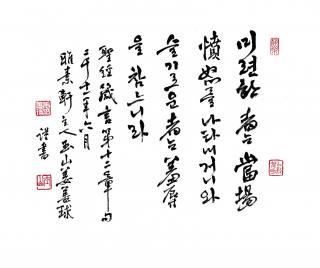 미련한 者는 當場
憤怒를 나타내거니와
슬기로운 者는 羞辱
을 참느니라
聖經 箴言 第十二章句
二千十二年六月
雅素軒主人 玉山 姜善球
謹書